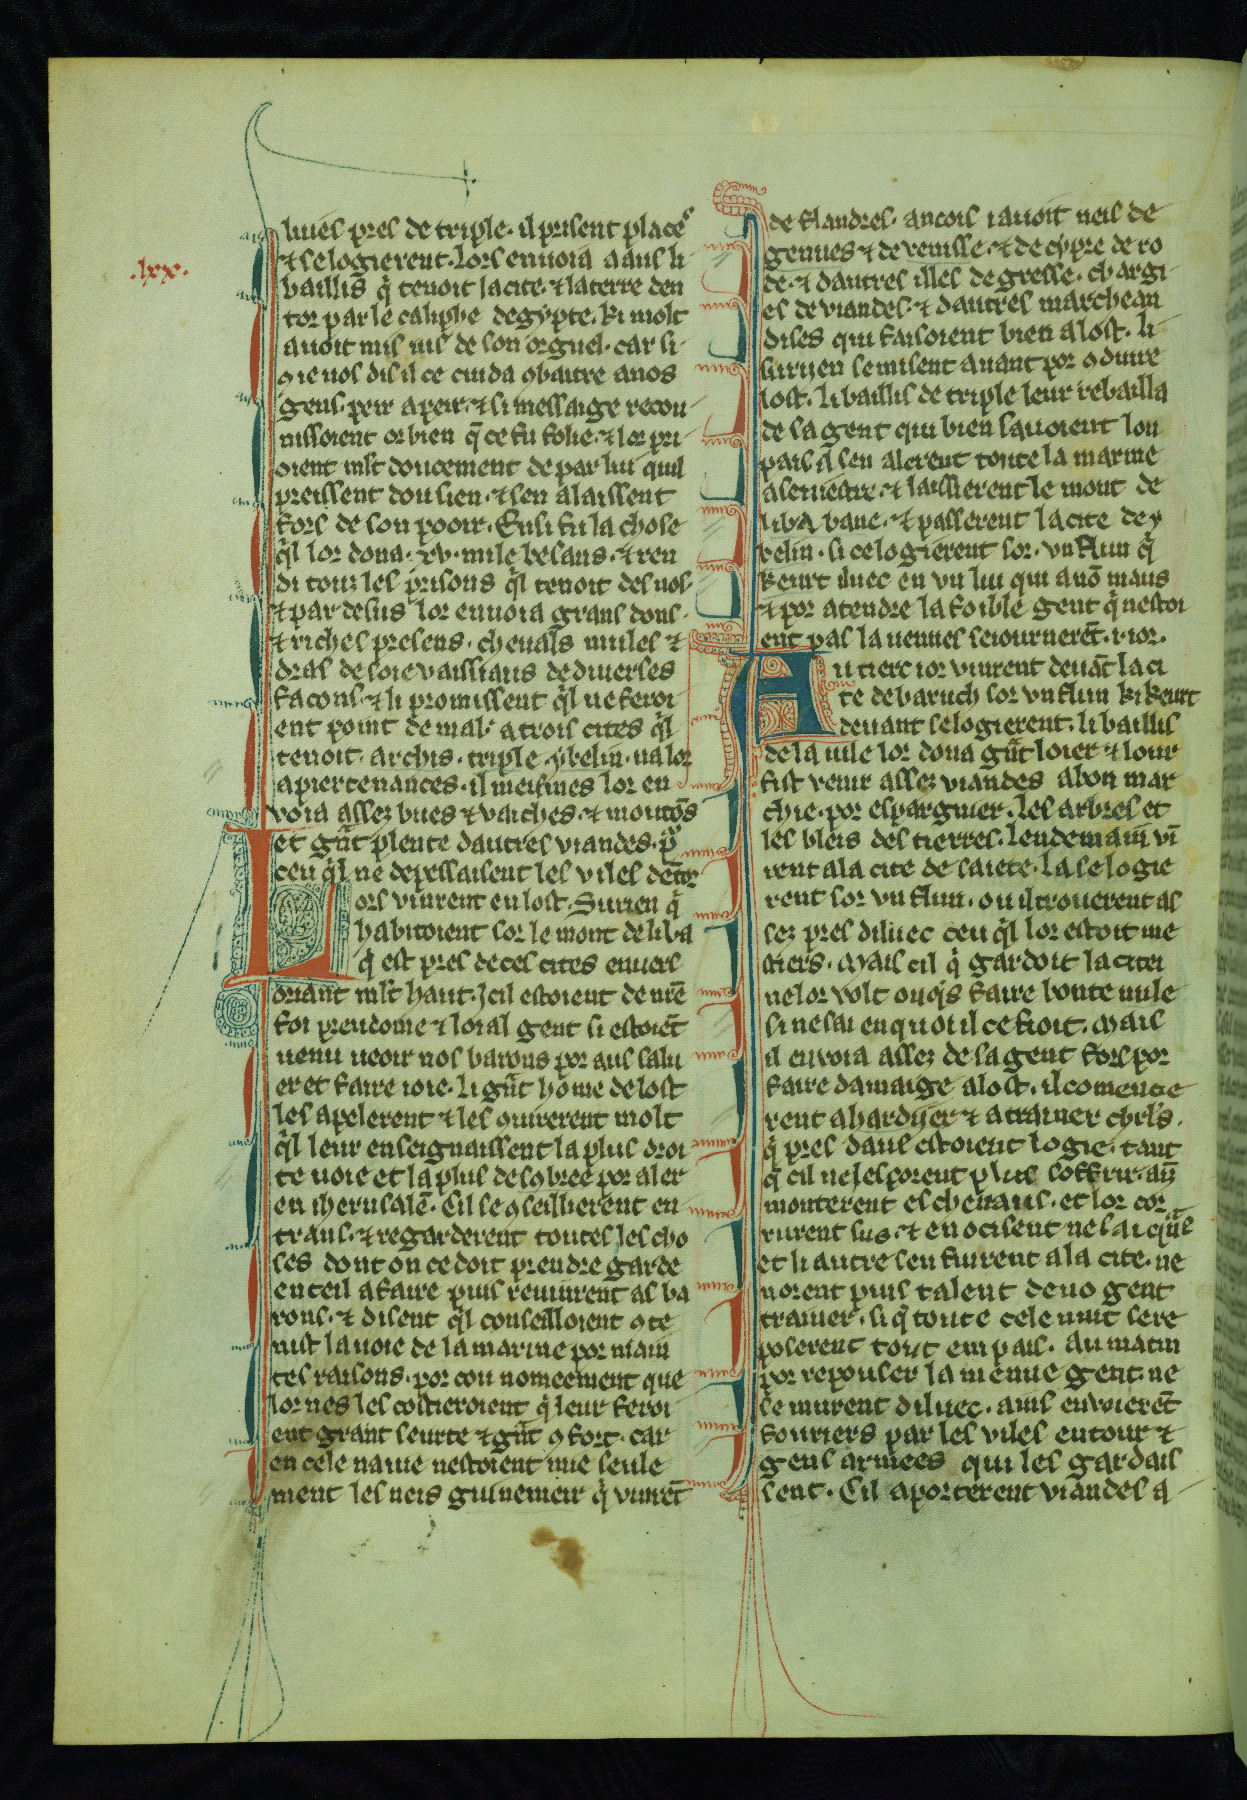 .lxx.
liues pres de triple. il prisent place
⁊ se logierent. Lors enuoia a aus li
baillis q̇ tenoit la cite. ⁊ la terre den
tor par le caliphe degypte. ki molt
auoit mis ius de son orguel. car si
9 ie uos dis il ce cuida 9batre a nos
gens. peir a peir. ⁊ si messaige recon
nissoient or bien q̄ ce fu folie. ⁊ lor pri
oient ml't doucement de par lui quil
preissent dou sien. ⁊ sen alaissent
fors de son pooir. Ensi fu la chose
q̇l lor dona. xv. mile besans. ⁊ ren
di touz les prisons q̇l tenoit des nos.
⁊ par desus lor enuoia grans dons.
⁊ riches presens. cheuals mules ⁊
dras de soie vaissiaus de diuerses
facons. ⁊ li promissent q̇l ne feroi
ent point de mal. a trois cites q̇l
tenoit. archis. triple. ybelin. ⁊ a lor
apiertenances. il meismes lor en
voia assez bues ⁊ vaiches. ⁊ moutōs
et gn̄t plente dautres viandes. p̄
ceu q̇l ne depessaisent les viles dētor
Lors vinrent en lost. Surien q̇
habitoient sor le mont de liba
q̇ est pres de ces cites enuers
oriant ml't haut. Jcil estoient de nr̄e
foi preudome ⁊ loial gent si estoiēt
uenu ueoir nos barons por aus salu
er et faire ioie. li gn̄t home de lost
les apelerent ⁊ les 9iurerent molt
q̇l leur enseignaissent la plus droi
te uoie et la plus de sobree por aler
en iherusalē. Cil se 9seillierent en
traus. ⁊ regarderent toutes les cho
ses dont on ce doit prendre garde
en teil afaire puis reuinrent as ba
rons. ⁊ disent q̇l conseilloient 9 te
nist la uoie de la marine por main
tes raisons. por cou nomeement que
lor nes les costieroient q̇ leur feroi
ent grant seurte ⁊ gn̄t 9fort. car
en cele nauie nestoient mie seule
ment les neis guinemeir q̇ vinrēt
de flandres. ancois i auoit neis de
gennes ⁊ de venisse. ⁊ de cypre de ro
de. ⁊ dautres illes de gresse. chargi
es de viandes. ⁊ dautres marchean
dises qui faisoient bien a lost. li
suryen se misent auant por 9duire
lost. li baillis de triple leur rebailla
de sa gent qui bien sauoient lou
pais q̇ sen alerent toute la marine
a seniestre. ⁊ laissierent le mont de
libA bane. ⁊ passerent la cite de y
belin. si ce logierent sor. vn flun q̇
keurt iluec en vn liu qui a nō maus
⁊ por atendre la foible gent q̇ nestoi
ent pas la uenues seiournerēt. i. ior.
Au tierc ior vinrent deuāt la ci
te de baruch sor vn flun ki keurt
deuant se logierent. li baillis
de la uile lor dona gn̄t loier ⁊ lour
fist venir assez viandes a bon mar
chie. por espargnier. les arbres et
les bleis des tierres. lendemain vi̅
rent a la cite de saiete. la se logie
rent sor vn flun. ou il trouerent as
sez pres diluec ceu q̇l lor estoit me
stiers. Mais cil q̇ gardoit la citei
ne lor volt onq̇s faire bonte nule
si ne sai en quoi il ce fioit. Mais
il enuoia assez de sa gent fors por
faire damaige a lost. il comencie
rent a hardyer ⁊ a trainer chrl's.
q̇ pres daus estoient logie. tant
q̄ cil ne les porent plus soffrir. ain̄
monterent es cheuaus. et lor cor
rurent sus. ⁊ en ocisent ne sai
et li autre sen fuirent a la cite. ne
norent puis talent de no gent
trainer. si q̇ toute cele nuit se re
poserent tout em pais. Au matin
por repouser la menue gent. ne
se murent diluec. ains enuoierēt
fouriers par les viles entour ⁊
gens armees qui les gardais
sent. Cil aporterent viandes a